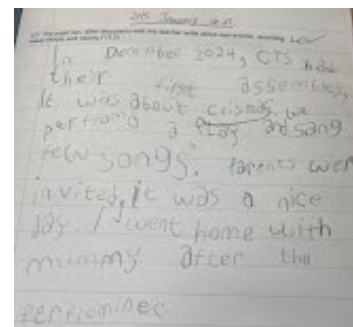 In December 2024, CTS had
their first assembly,
It was about crismas. we
perfromd a play and sang
few songs. Parents wer
invited, it was a nice
day. I went home with
mummy after the